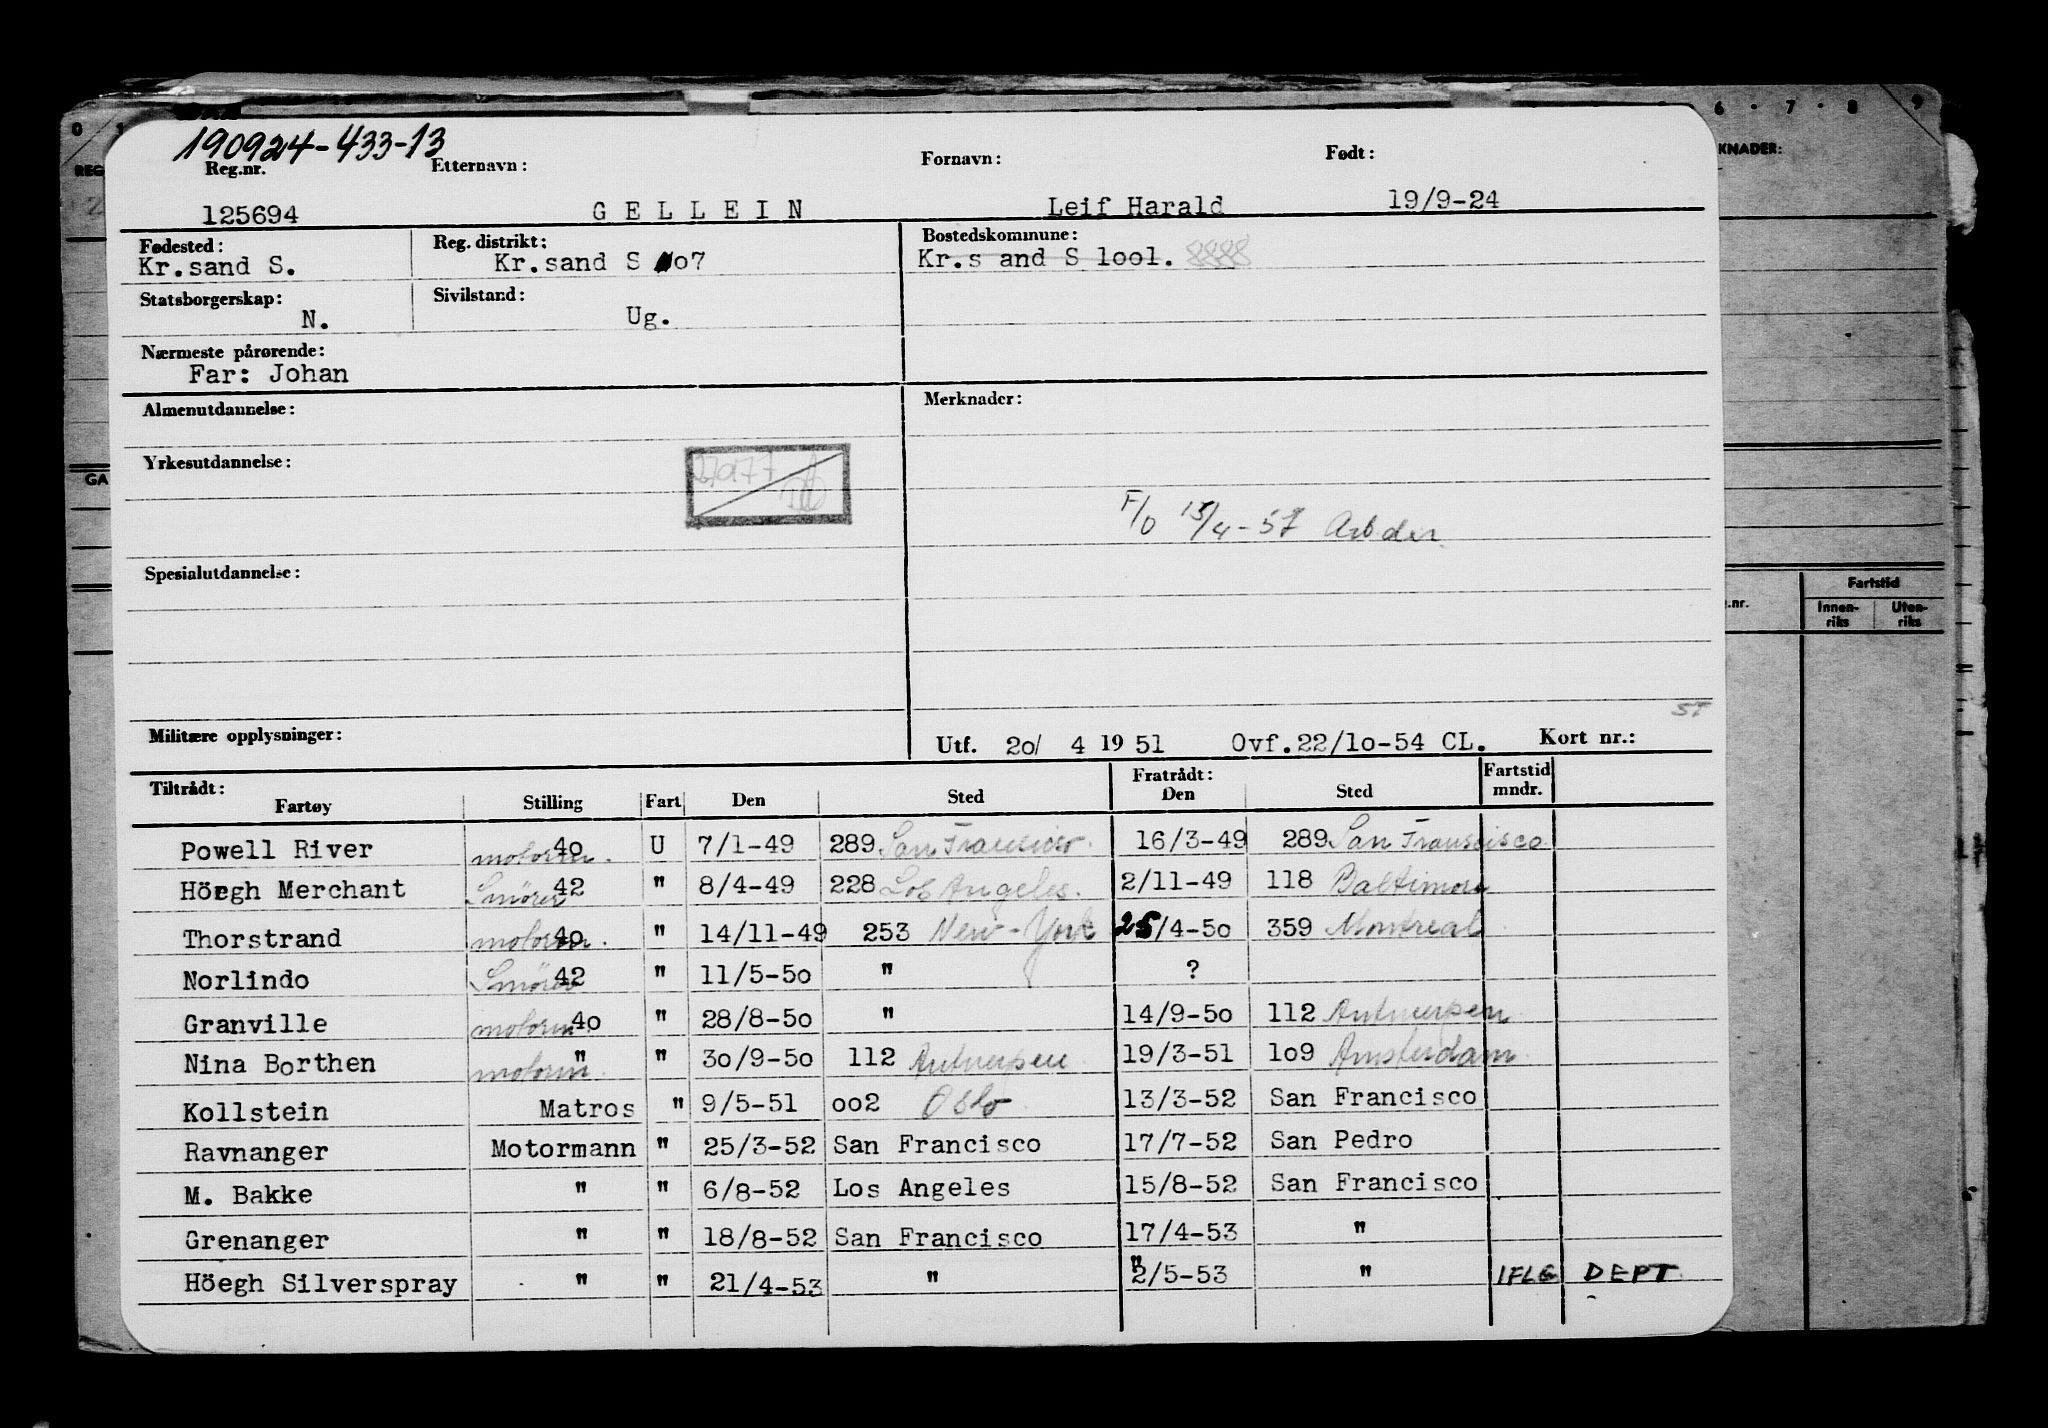 0 1 6 · 7 · 8 9
190924-433-13
REG KNADER:
Reg.nr. Etternavn: Fornavn: Født:
125694 GELLEIN Leif Harald 19/9-24
Fødested: Reg. distrikt: Bostedskommune:
Kr.sand S. Kr.sand S o7 Kr.s and S lool.
Statsborgerskap: Sivilstand:
N. Ug.
Nærmeste pårørende:
Far: Johan
Almenutdannelse: Merknader:
Yrkesutdannelse:
GA
F/O 15/4-57 Arb.der.
Spesialutdannelse:
Fartstid
.nr. Innen-riks Uten-riks
ST
Militære opplysninger: Utf. 2o/ 4 19 51 Ovf.22/lo-54 CL. Kort nr.:
Tiltrådt: Fratrådt: Fartstid
Fartøy Stilling Fart Den Sted Den Sted mndr.
Powell River 4o motorm. U 7/1-49 289 San Francisco. 16/3-49 289 San Francisco
Höegh Merchant 42 Smører " 8/4-49 228 Los Angeles. 2/11-49 118 Baltimore
Thorstrand 4o motorm. " 14/11-49 253 New-York 25/4-5o 359 Montreal
Norlindo 42 Smører " 11/5-5o " ?
Granville 4o motorm. " 28/8-5o " 14/9-5o 112 Antwerpen
Nina Borthen " motorm. " 3o/9-5o 112 Antwerpen 19/3-51 lo9 Amsterdam
Kollstein Matros " 9/5-51 oo2 Oslo 13/3-52 San Francisco
Ravnanger Motormann " 25/3-52 San Francisco 17/7-52 San Pedro
M. Bakke " " 6/8-52 Los Angeles 15/8-52 San Francisco
Grenanger " " 18/8-52 San Francisco 17/4-53 "
Höegh Silverspray " " 21/4-53 " "2/5-53 " IFLG DEPT